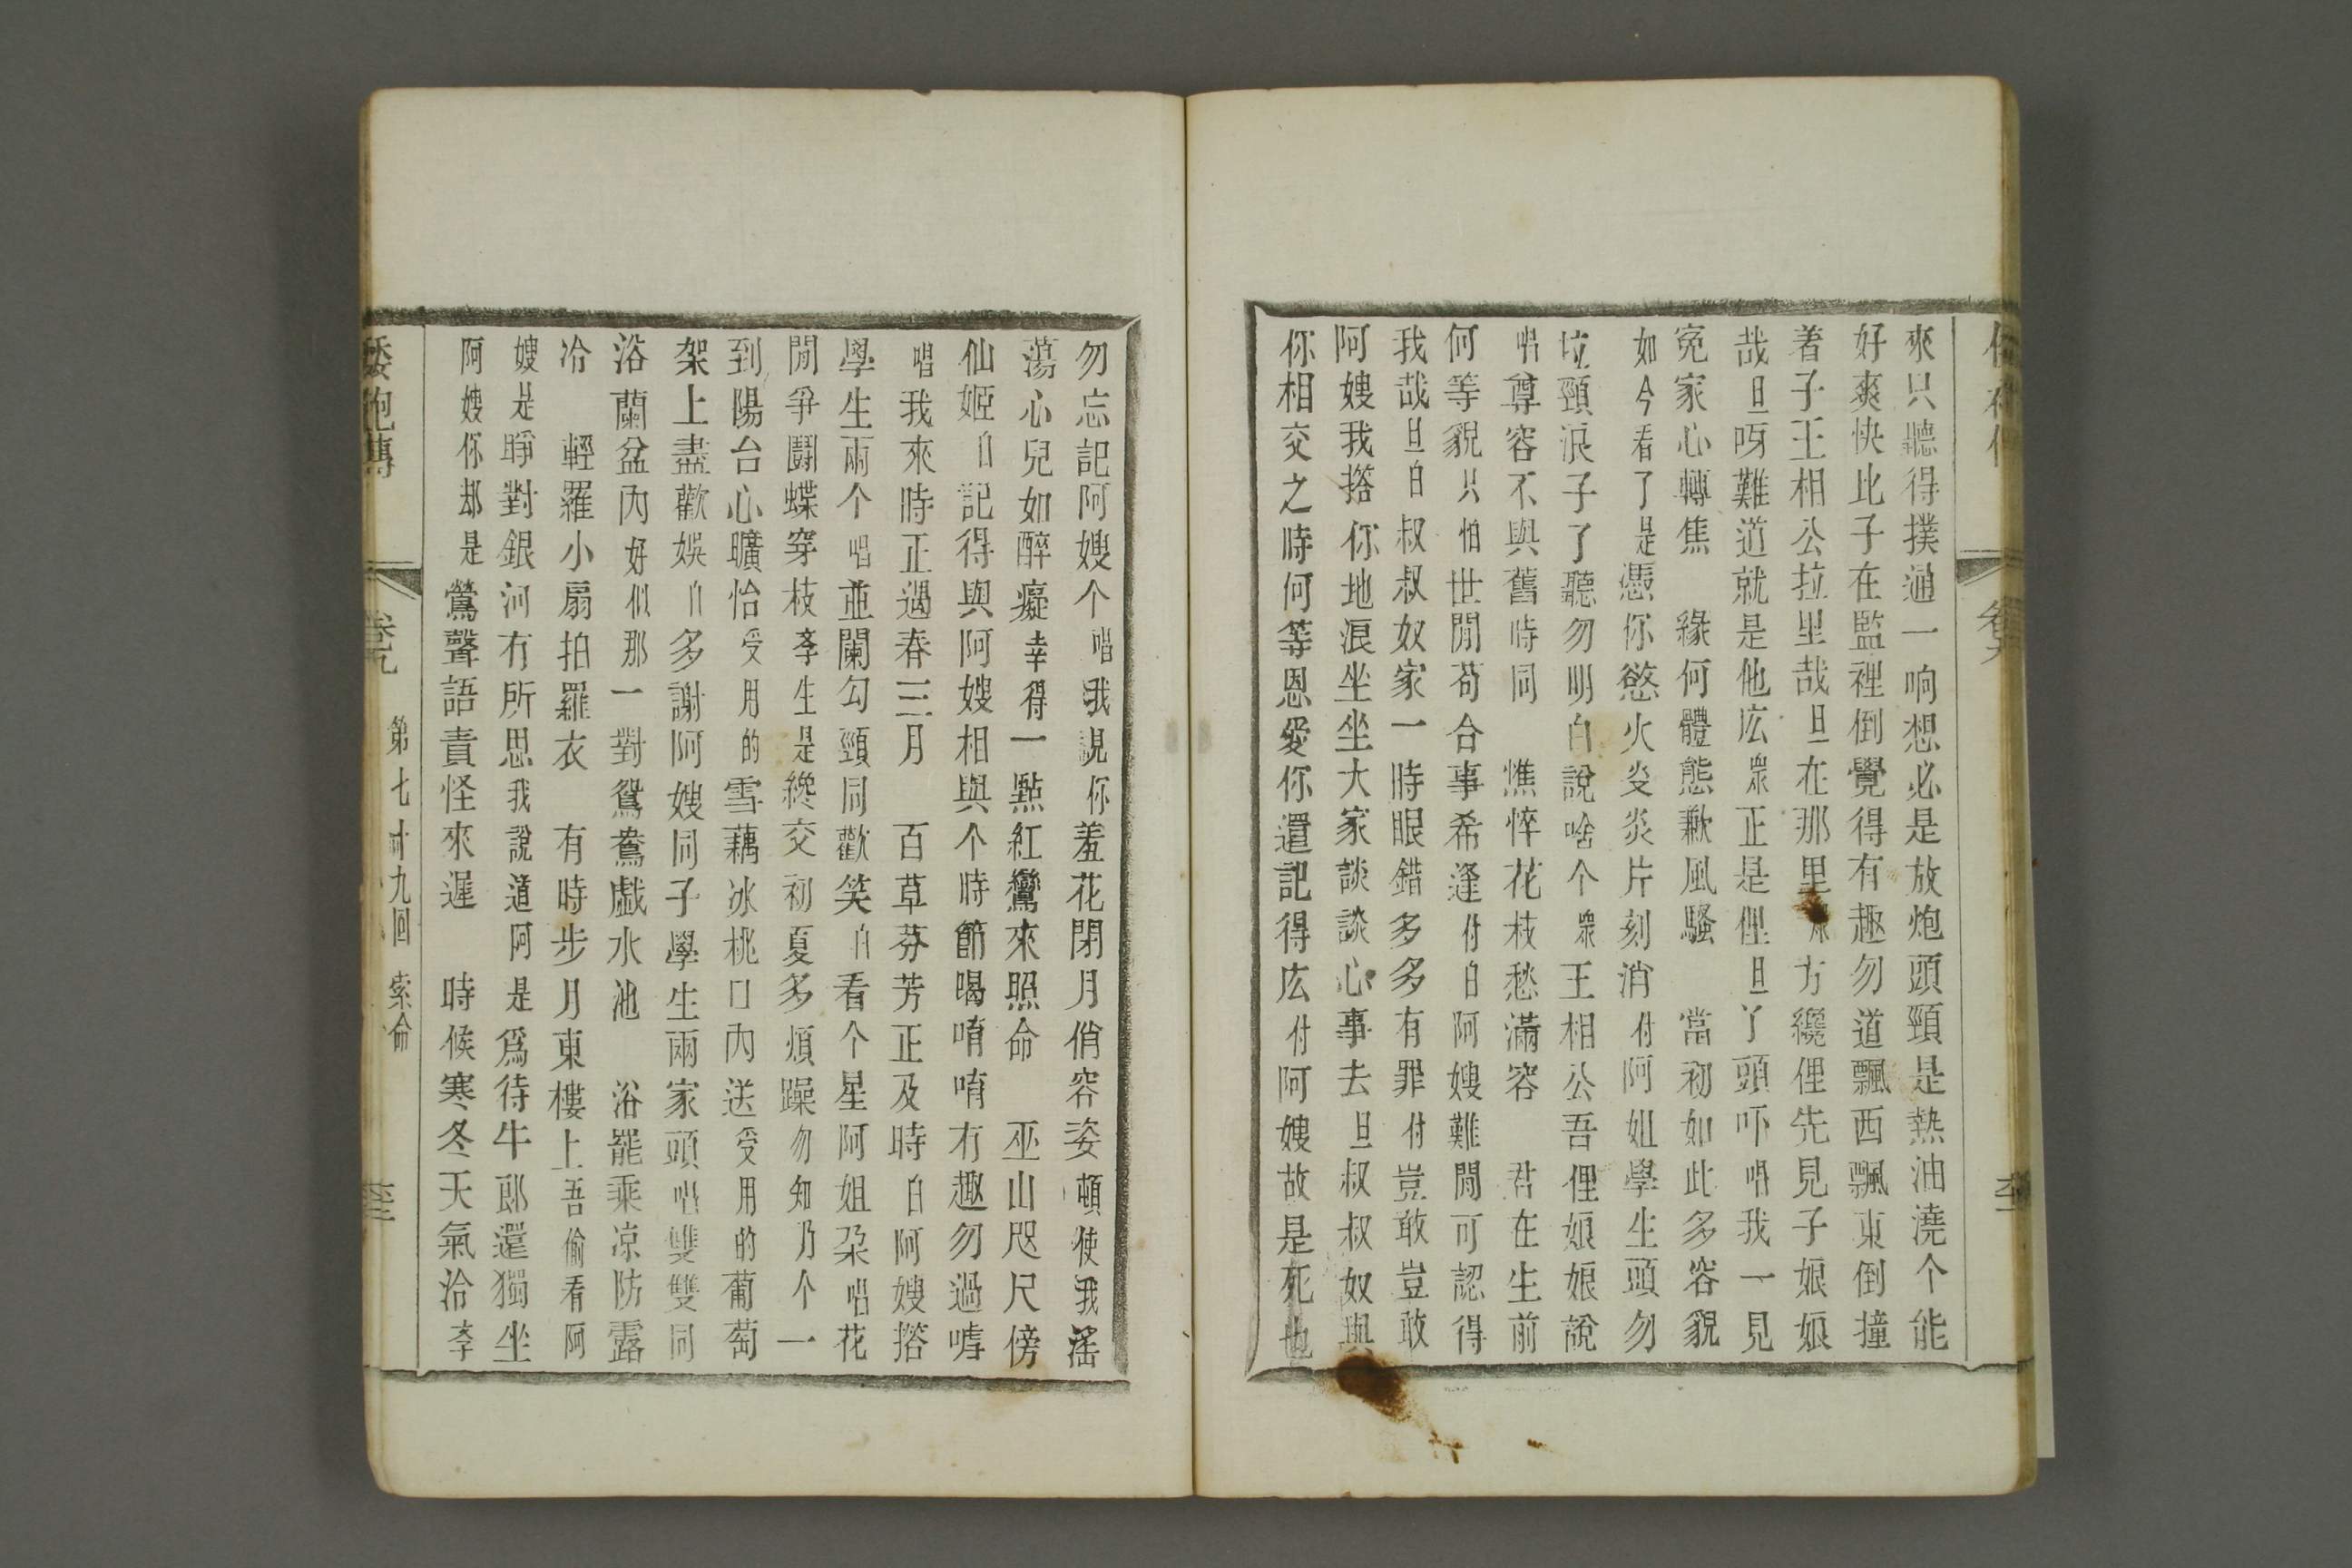 來只聽得撲通一响想必是放炮頭頸是熱油澆个能
好爽快比子在監裡倒覺得有趣勿道飄西飄東倒撞
着子王相公拉里哉旦在那里衆方纔俚先見子娘娘
哉旦呀難道就是他庅衆正是俚旦丫頭吓唱我一見
寃家心轉焦 緣何體態歉風騷 當初如此多容貌
如今看了是憑你慾火炎炎片刻消付阿姐學生頭勿
垃頸浪子了聽勿明白說啥个衆王相公吾俚娘娘說
唱尊容不與舊時同 憔悴花枝愁滿容 君在生前
何等貌只怕世間苟合事希逢付白阿嫂難閒可認得
我哉旦白叔叔奴家一時眼錯多多有罪付豈敢豈敢
阿嫂我撘你地浪坐坐大家談談心事去旦叔叔奴與
你相交之時何等恩愛你還記得庅付阿嫂故是死也
勿忘記阿嫂个唱我說你羞花閉月俏容姿頓使我滛
蕩心兒如醉癡幸得一㸃紅鸞來照命 巫山咫尺傍
仙姬白記得與阿嫂相與个時節喝唷唷有趣勿過嘑
唱我來時正遇春三月 百草芬芳正及時白阿嫂撘
學生兩个唱並闌勾頸同歡笑白看个星阿姐朶唱花
閒爭鬪蝶穿枝李生是纔交初夏多煩躁勿知乃个一
到陽台心曠怡受用的雪藕冰桃口內送受用的葡萄
架上盡歡娛白多謝阿嫂同子學生兩家頭唱雙雙同
浴蘭盆內好似那一對鴛鴦戲水池 浴罷乘凉防露
冷 輕羅小扇拍羅衣 有時步月東樓上吾偷看阿
嫂是睜對銀河有所思我說道阿是爲待牛郎還獨坐
阿嫂你却是鶯聲語責怪來遲 時候寒冬天氣冾李
倭袍傳 卷九 第七十九回 索命